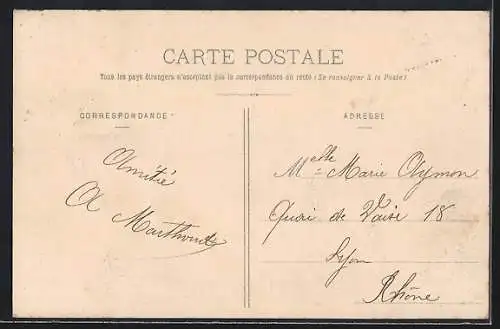 CARTE POSTALE
Tous les pays étrangers n'acceptent pas la correspondance au recto (Se renseigner à la Poste)
CORRESPONDANCE
ADRESSE
Amitié
A Marthoud
Melle Marie Aymon
Quai de Vaise 18
Lyon
Rhône